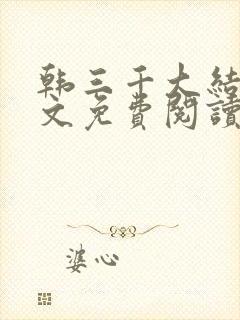 韩三千大结
文免費閱讀
婆心